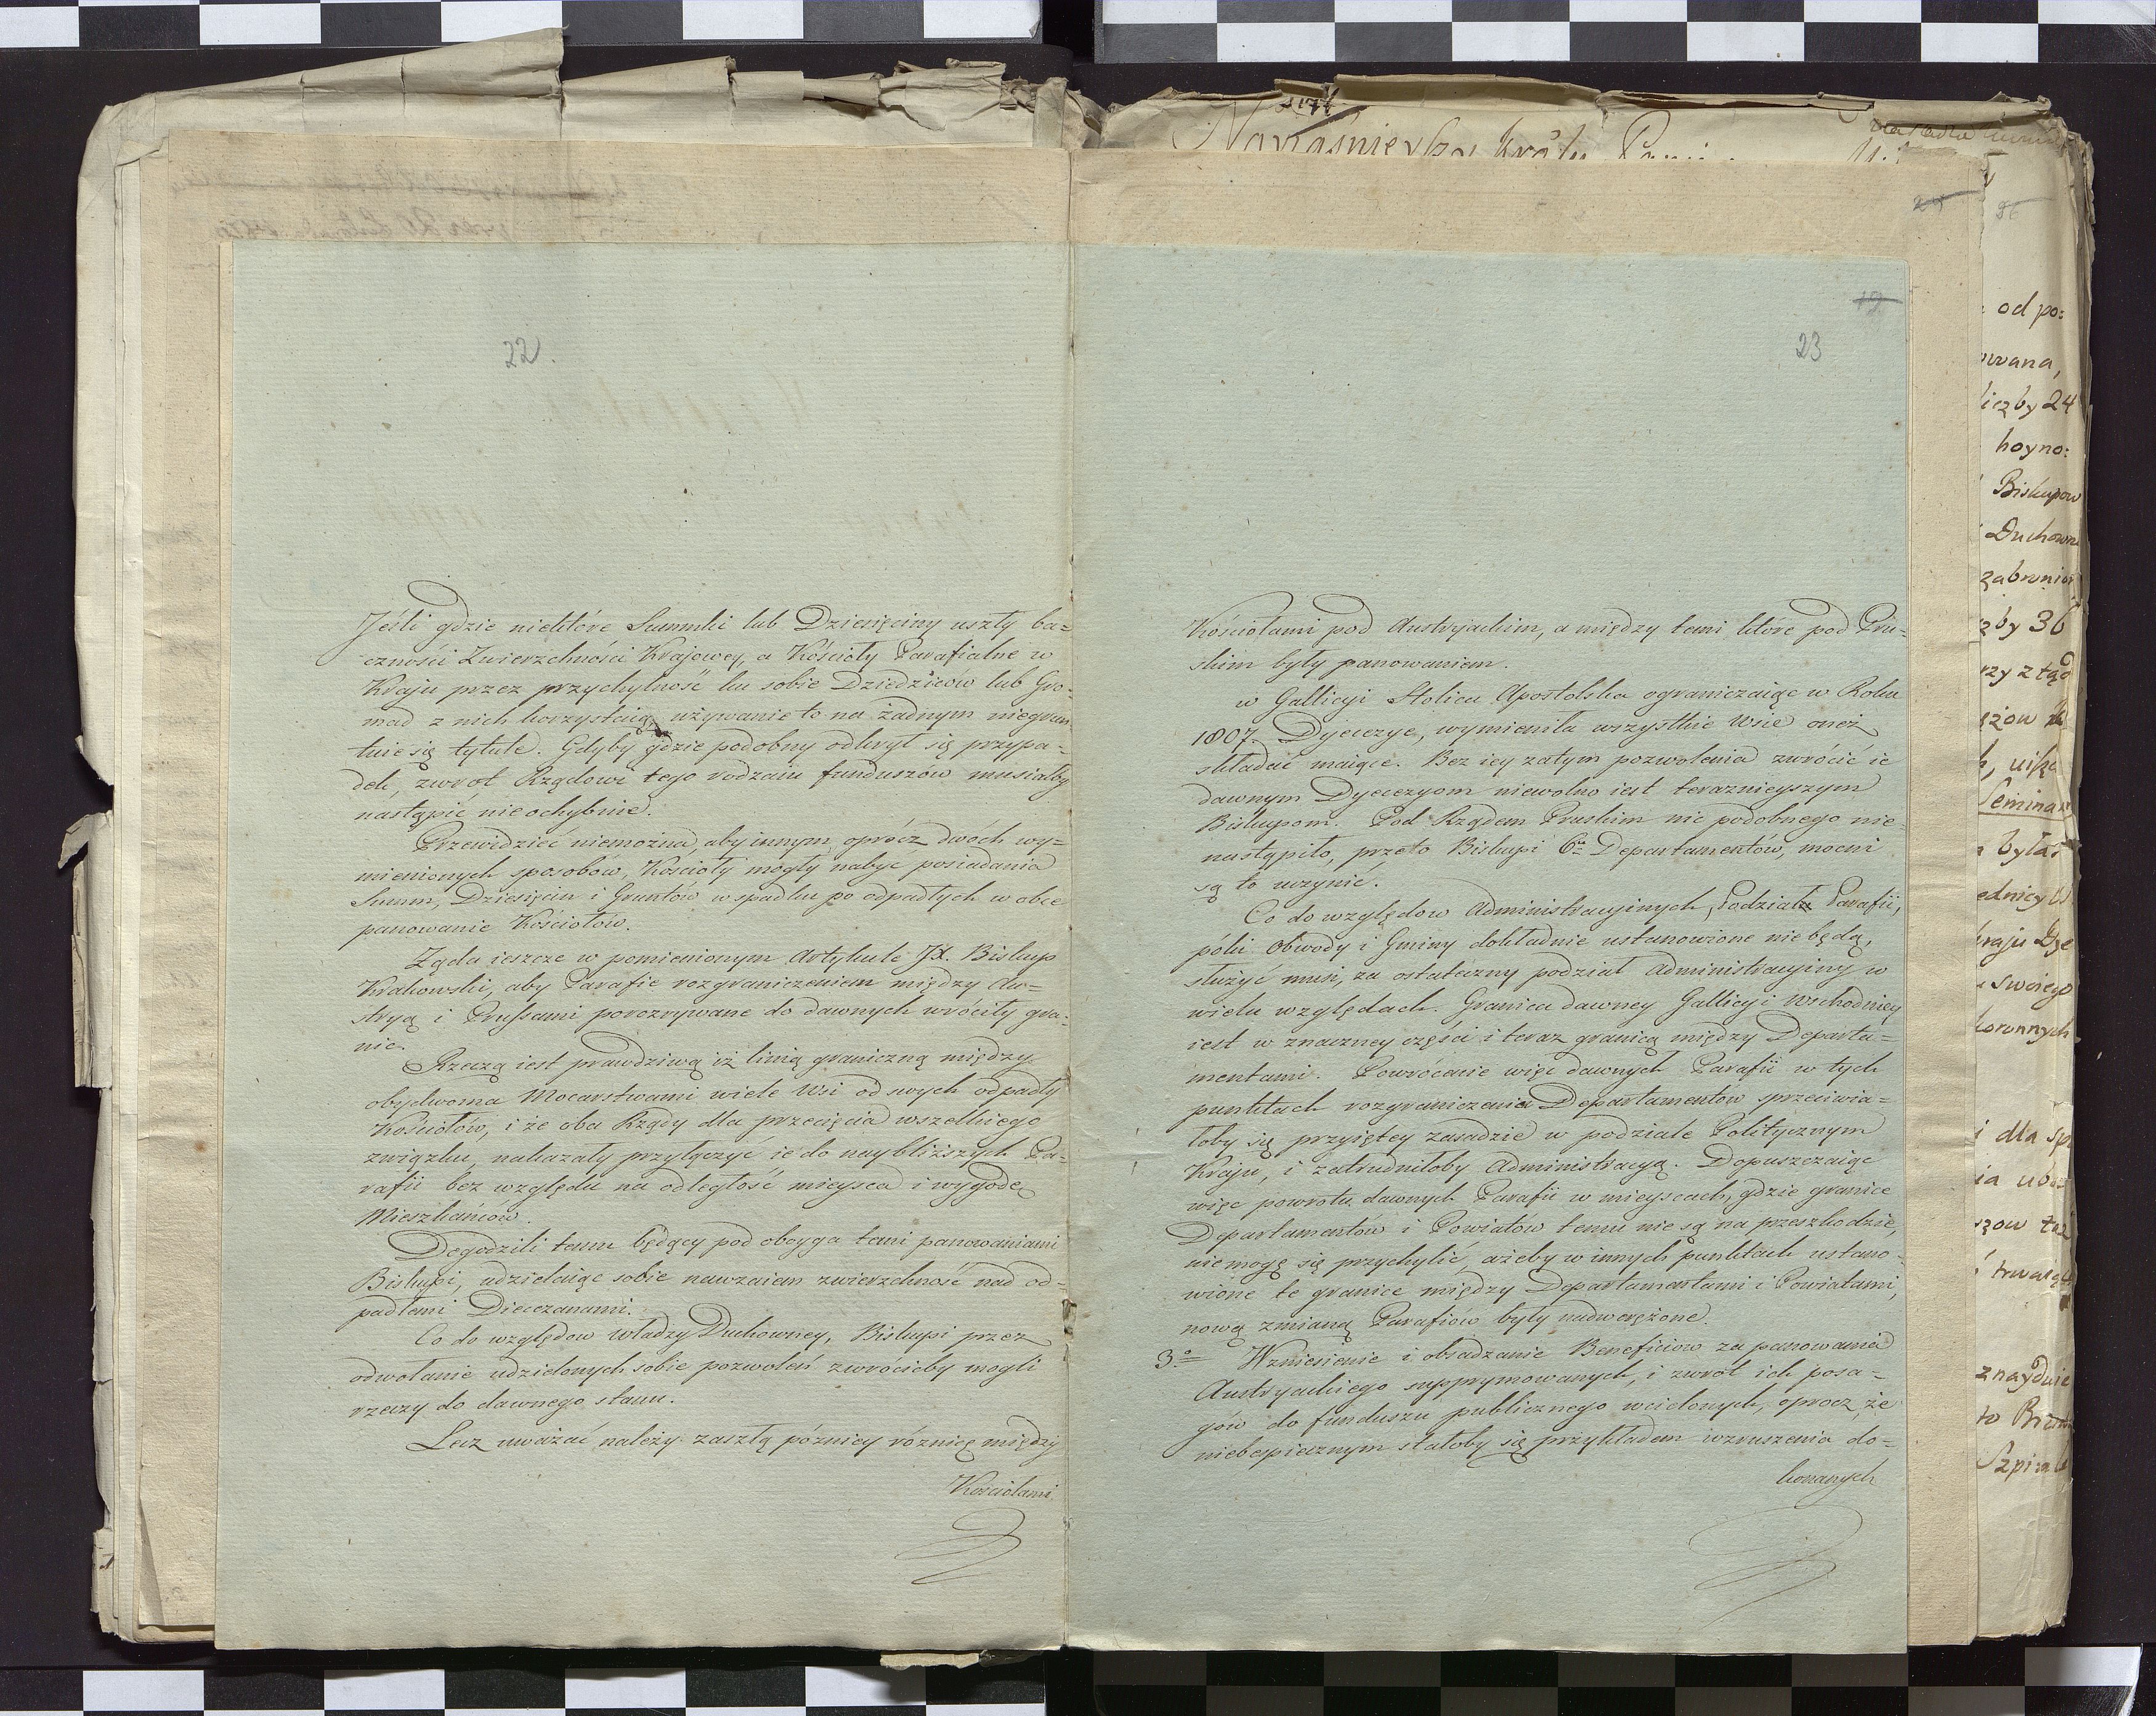 22.
Jeśli gdzie niektóre Summki lub Dziesięciny uszły ba=
czności Zwierzchności Krajowey, a Kościoły Parafialne w
Kraju przez przychylność ku sobie Dziedziców lub Gro-
mad z nich korzystaią, używanie to na żadnym niegrun
tuie się tytule. Gdyby gdzie podobny odkrył się przypa-
dek, zwrot Rządowi tego rodzaiu funduszów musiałby
nastąpić nieochybnie.
Przewidzieć niemożna, aby innym oprócz dwóch wy=
mienionych sposobów, Kościoły mogły nabyć posiadania
Summ, Dziesięcin i Gruntów w spadku po odpadłych w obce
panowanie Kościołów.
Żąda ieszcze w pomienionym Artykule JX. Biskup
Krakowski, aby Parafie rozgraniczeniem między Au=
stryą i Prussami porozrywane do dawnych wróciły gra-
nic.
Rzeczą iest prawdziwą iż linią graniczną między
obydwoma Mocarstwami wiele Wsi od swych odpadły
Kościołów, i że oba Rządy dla przecięcia wszelkiego
związku, nakazały przyłączyć ie do naybliższych Pa-
rafii bez względu na odległość mieysca i wygodę
Mieszkańców.
Dogodzili temu będący pod obcyga temi panowaniami
Biskupi, udzielaiąc sobie nawzaiem zwierzchność nad od=
padłemi Diecezanami.
Co do względow władzy Duchowney, Biskupi przez
odwołanie udzielonych sobie pozwoleń zwrócićby mogli
rzeczy do dawnego stanu.
Lecz uważać należy zaszłą pózniey różnicę między
Kościołami
19
23
Kościołami pod Austryackim, a między temi które pod Pru-
skim były panowaniem.
w Gallicyi Stolica Apostolska ograniczaiąc w Roku
1807. Dyecezye, wymieniła wszystkie Wsie oneż
składać maiące. Bez iey zatym pozwolenia zwrócić ie
dawnym Dyecezyom niewolno iest teraznieyszym
Biskupom. Pod Rządem Pruskim nic podobnego nie-
nastąpiło, przeto Biskupi 6iu Departamentów, mocni
są to uczynić.
Co do względow Administracyinych, Podział Parafii,
póki Obwody i Gminy dokładnie ustanowione nie będą,
służyć musi, za ostateczny podział Administracyiny w
wielu względach. Granica dawney Gallicyi Wschodniey
iest w znaczney części i teraz granicą między Departa=
mentami. Powrócenie więc dawnych Parafii w tych
punktach rozgraniczenia Departamentów sprzeciwia=
łoby się przyiętey zasadzie w podziale Politycznym
Kraju, i zatrudniłoby Administracyą. Dopuszczaiąc
więc powrotu dawnych Parafii w mieyscach, gdzie granice
Departamentów i Powiatów temu nie są na przeszkodzie,
nie mogę się przychylić, ażeby w innych punktach ustano-
wione te granice między Departamentami i Powiatami,
nową zmianą Parafiów były nadwerężone.
3o Wzniesienie i obsadzanie Beneficiów za panowania
Austryackiego supprymowanych, i zwrot ich posa=
gów do funduszu publicznego wcielonych, oprocz, że
niebezpiecznym stałoby się przykładem wzruszenia do=
konanych
24
86
od po:
wana,
liczby 24
hoyno:
Biskupow
Duchown
zby 36
Seminar
była
kraju
swoiego
koronnych
i dla
znayduie
to
Szpital